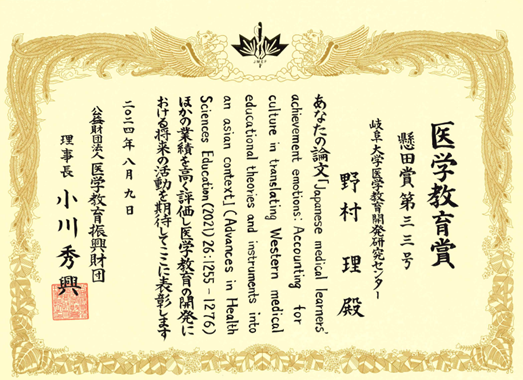 医学教育賞
懸田賞第三三号
岐阜大学医学教育開発研究センター
野村 理 殿
あなたの論文「Japanese medical learners'
achievement emotions: Accounting for
culture in translating Western medical
educational theories and instruments into
an asian context」(Advances in Health
Sciences Education(2021)26:1255-1276)
ほかの業績を高く評価し医学教育の開発に
おける将来の活動を期待してここに表彰します
二〇二四年八月九日
公益財団法人 医学教育振興財団
理事長 小川秀興